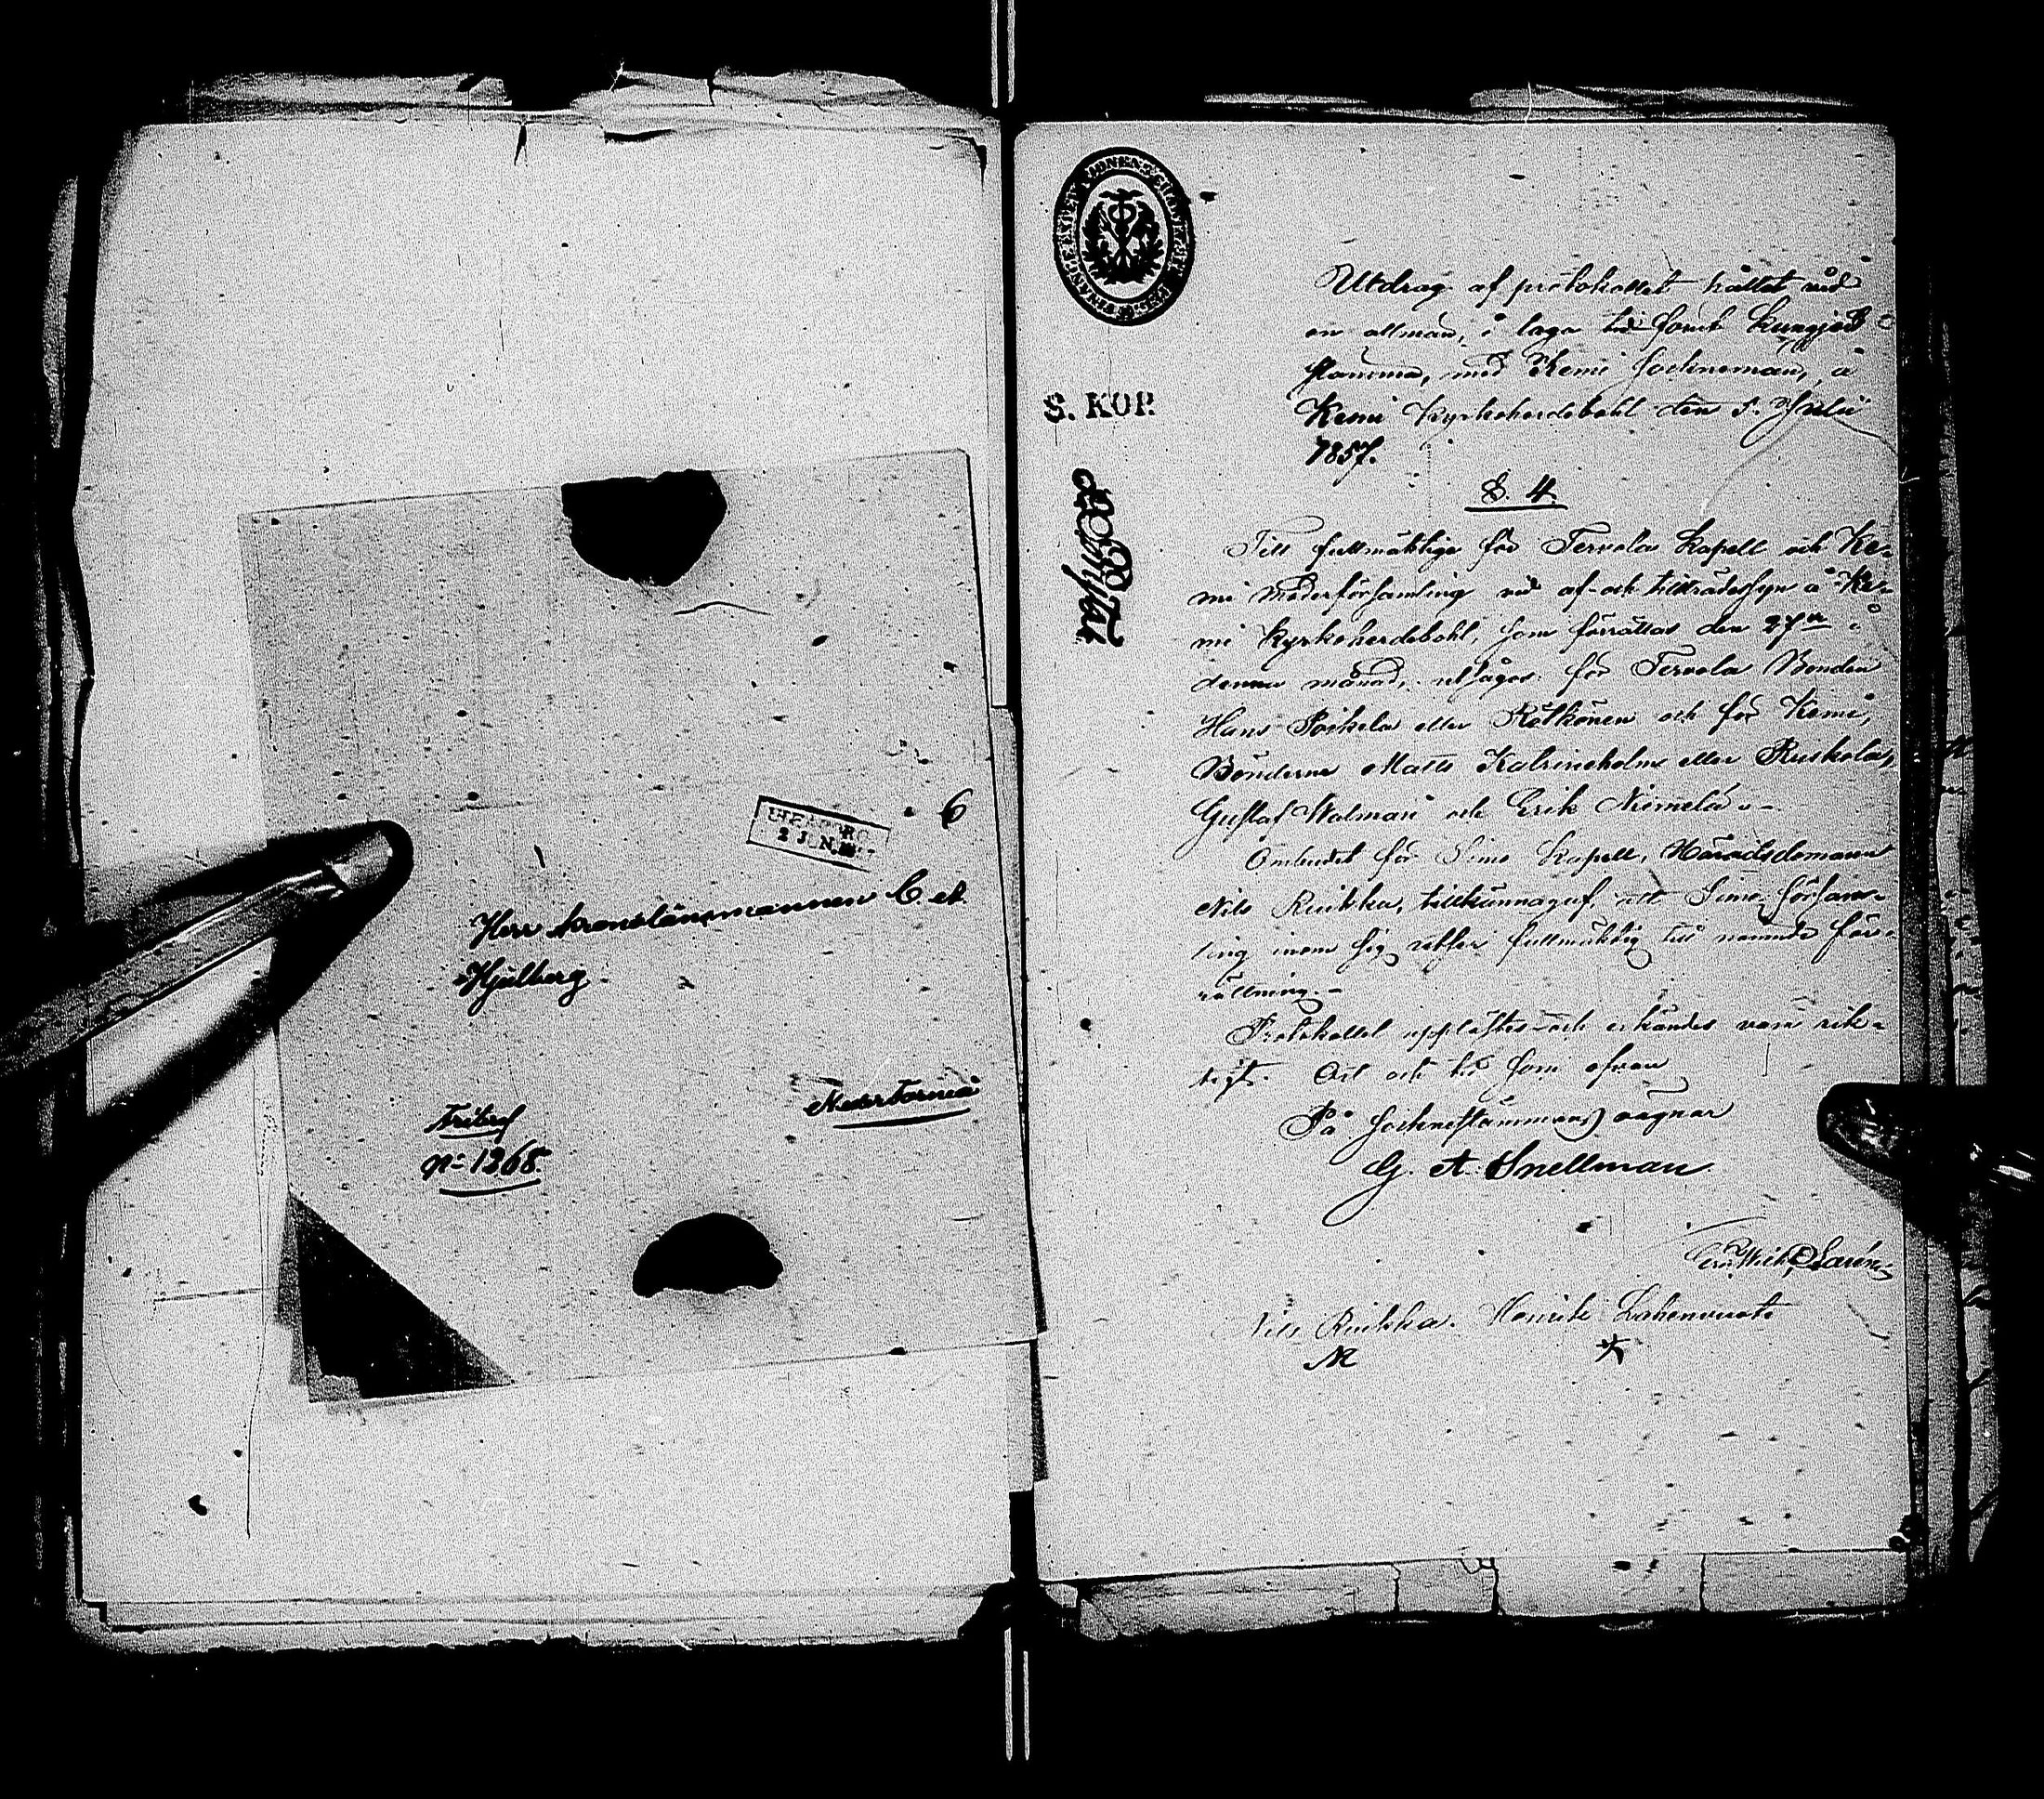 6
ULEÅBORG
2 JUN. 18
Herr Kronolänsmannen C. et
Hjulberg
Neder Torneå
Fribref
No 1268.
S. KOP.
Utdrag af protokollet hållet vid
en allmän, i laga tid förut kungjord
stämma, med Kemi Socknemän, å
Kemi Kyrkoherdebohl den 5. Julii
1857.
§. 4.
Till fullmäktige för Tervola Kapell och Ke-
mi Moderförsamling vid af- och tillträdessyn å Ke-
mi Kyrkoherdebohl, som förrättas den 27de i
denna månad, utsågos för Tervola Bonden
Hans eller Rätkönen och för Kemi,
Bönderne Matts Katrineholm eller Ruskola,
Gustaf Walmari och Erik Niemelä.-
Ombudet för Simo Kapell, Häradsdomaren
Nils Ruikka, tillkännagaf, att Simo försam-
ling inom sig utser fullmäktig till nämnde för-
rättning.-
Protokollet upplästes och erkändes vara rik-
tigt. Ort och tid som ofvan
På Socknestämmans vägnar
G. A. Snellman
Nils Ruikka. Henrik